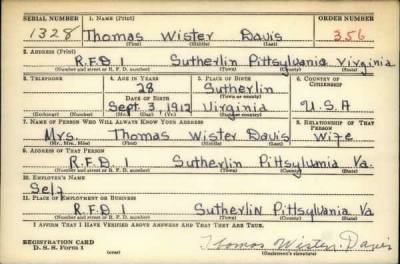 SERIAL NUMBER 1. NAME (Print) ORDER NUMBER
1328 Thomas Wister Davis 356
(First) (Middle) (Last)
2. ADDRESS (Print)
R.F.D 1 Sutherlin Pittsylvania Virginia
(Number and street or R. F. D. number) (Town) (County) (State)
3. TELEPHONE 4. AGE IN YEARS 5. PLACE OF BIRTH 6. COUNTRY OF CITIZENSHIP
28 Sutherlin
DATE OF BIRTH (Town or county)
Sept. 3, 1912 Virginia U.S.A
(Exchange) (Number) (Mo.) (Day) (Yr.) (State or country)
7. NAME OF PERSON WHO WILL ALWAYS KNOW YOUR ADDRESS 8. RELATIONSHIP OF THAT PERSON
Mrs. Thomas Wister Davis Wife
(Mr., Mrs., Miss) (First) (Middle) (Last)
9. ADDRESS OF THAT PERSON
R.F.D. 1 Sutherlin Pittsylvania Va.
(Number and street or R. F. D. number) (Town) (County) (State)
10. EMPLOYER'S NAME
Self
11. PLACE OF EMPLOYMENT OR BUSINESS
R.F.D 1 Sutherlin Pittsylvania Va
(Number and street or R. F. D. number) (Town) (County) (State)
I AFFIRM THAT I HAVE VERIFIED ABOVE ANSWERS AND THAT THEY ARE TRUE.
REGISTRATION CARD
D. S. S. Form 1 (over) Thomas Wister Davis
(Registrant's signature)